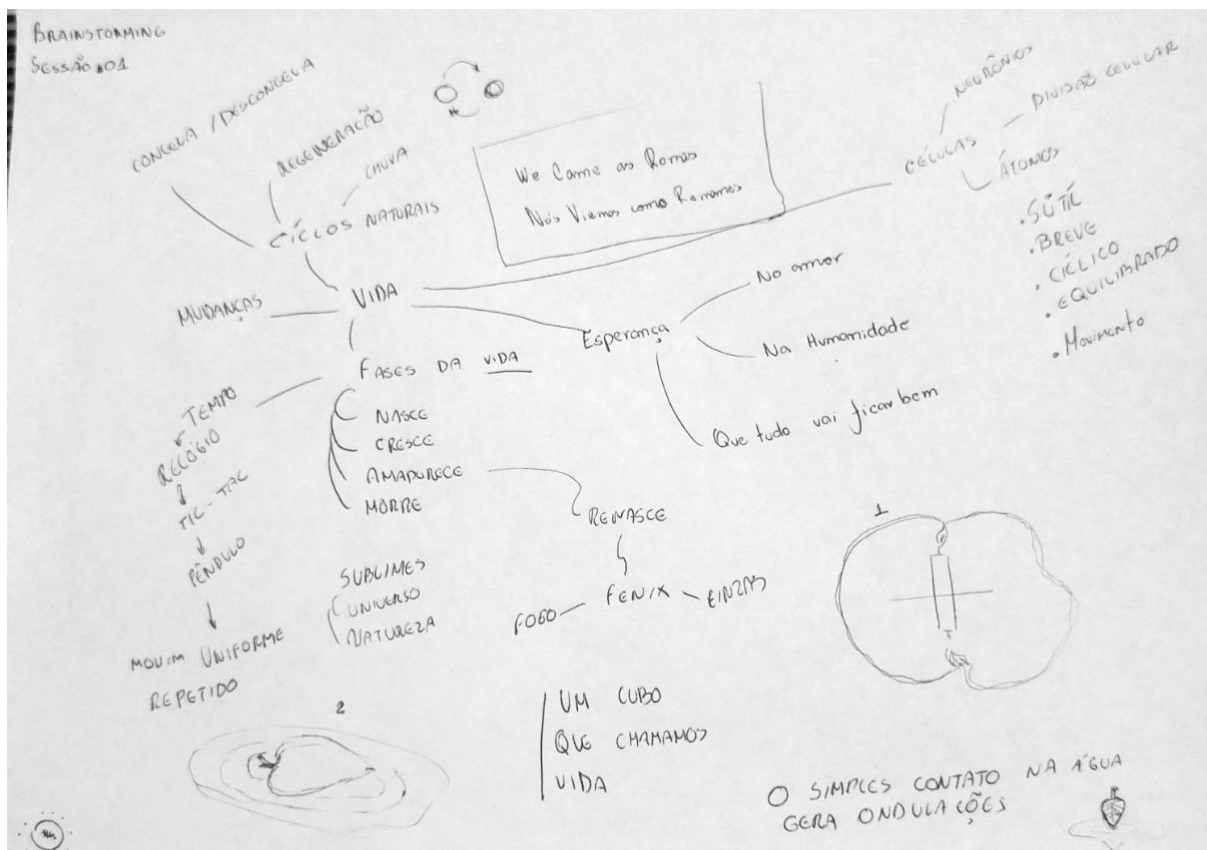 BRAINSTORMING
SESSÃO 01
CONGELA / DESCONGELA
REGENERAÇÃO
CHUVA
CÍCLOS NATURAIS
We Came as Romans
Nós Viemos como Romanos
NEURÔNIOS
DIVISÃO CELULAR
CÉLULAS
ÁTOMOS
. SÚTIL
. BREVE
. CÍCLICO
. EQUILIBRADO
. Movimento
MUDANÇAS
VIDA
Esperança
No amor
Na Humanidade
Que tudo vai ficar bem
FASES DA VIDA
NASCE
CRESCE
AMADURECE
MORRE
TEMPO
RELÓGIO
TIC-TAC
PÊNDULO
MOVIM UNIFORME
REPETIDO
RENASCE
FENIX
FOGO
CINZAS
SUBLIMES
UNIVERSO
NATUREZA
1
2
UM CUBO
QUE CHAMAMOS
VIDA
O SIMPLES CONTATO NA ÁGUA
GERA ONDULAÇÕES